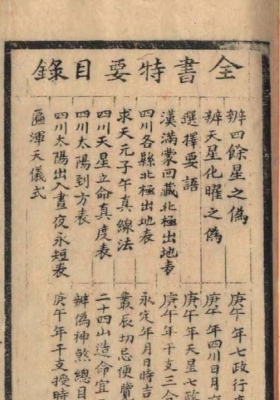 全書特要目錄
辨四餘星之偽
辨天星化曜之偽
選擇要語
漢滿蒙回藏北極出地表
四川各縣北極出地表
求天元子午真線法
四川天星立命真度表
四川太陽到方表
四川太陽出入晝夜永短表
渾天儀式
庚午年七政行度
庚午年四川日月
庚午年天星七政
庚午年干支三合
永定年月日時吉
叢辰切忌便覽
二十四山造命宜
辨偽神煞總目
庚午年干支授時